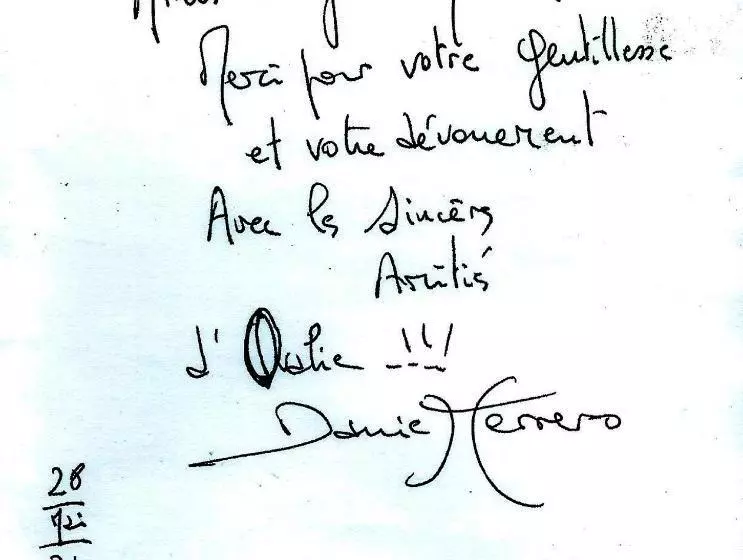 Merci pour votre gentillesse
et votre dévouement
Avec les sincères
Amitiés
d'Ovalie !!!
Daniel Herrero
28